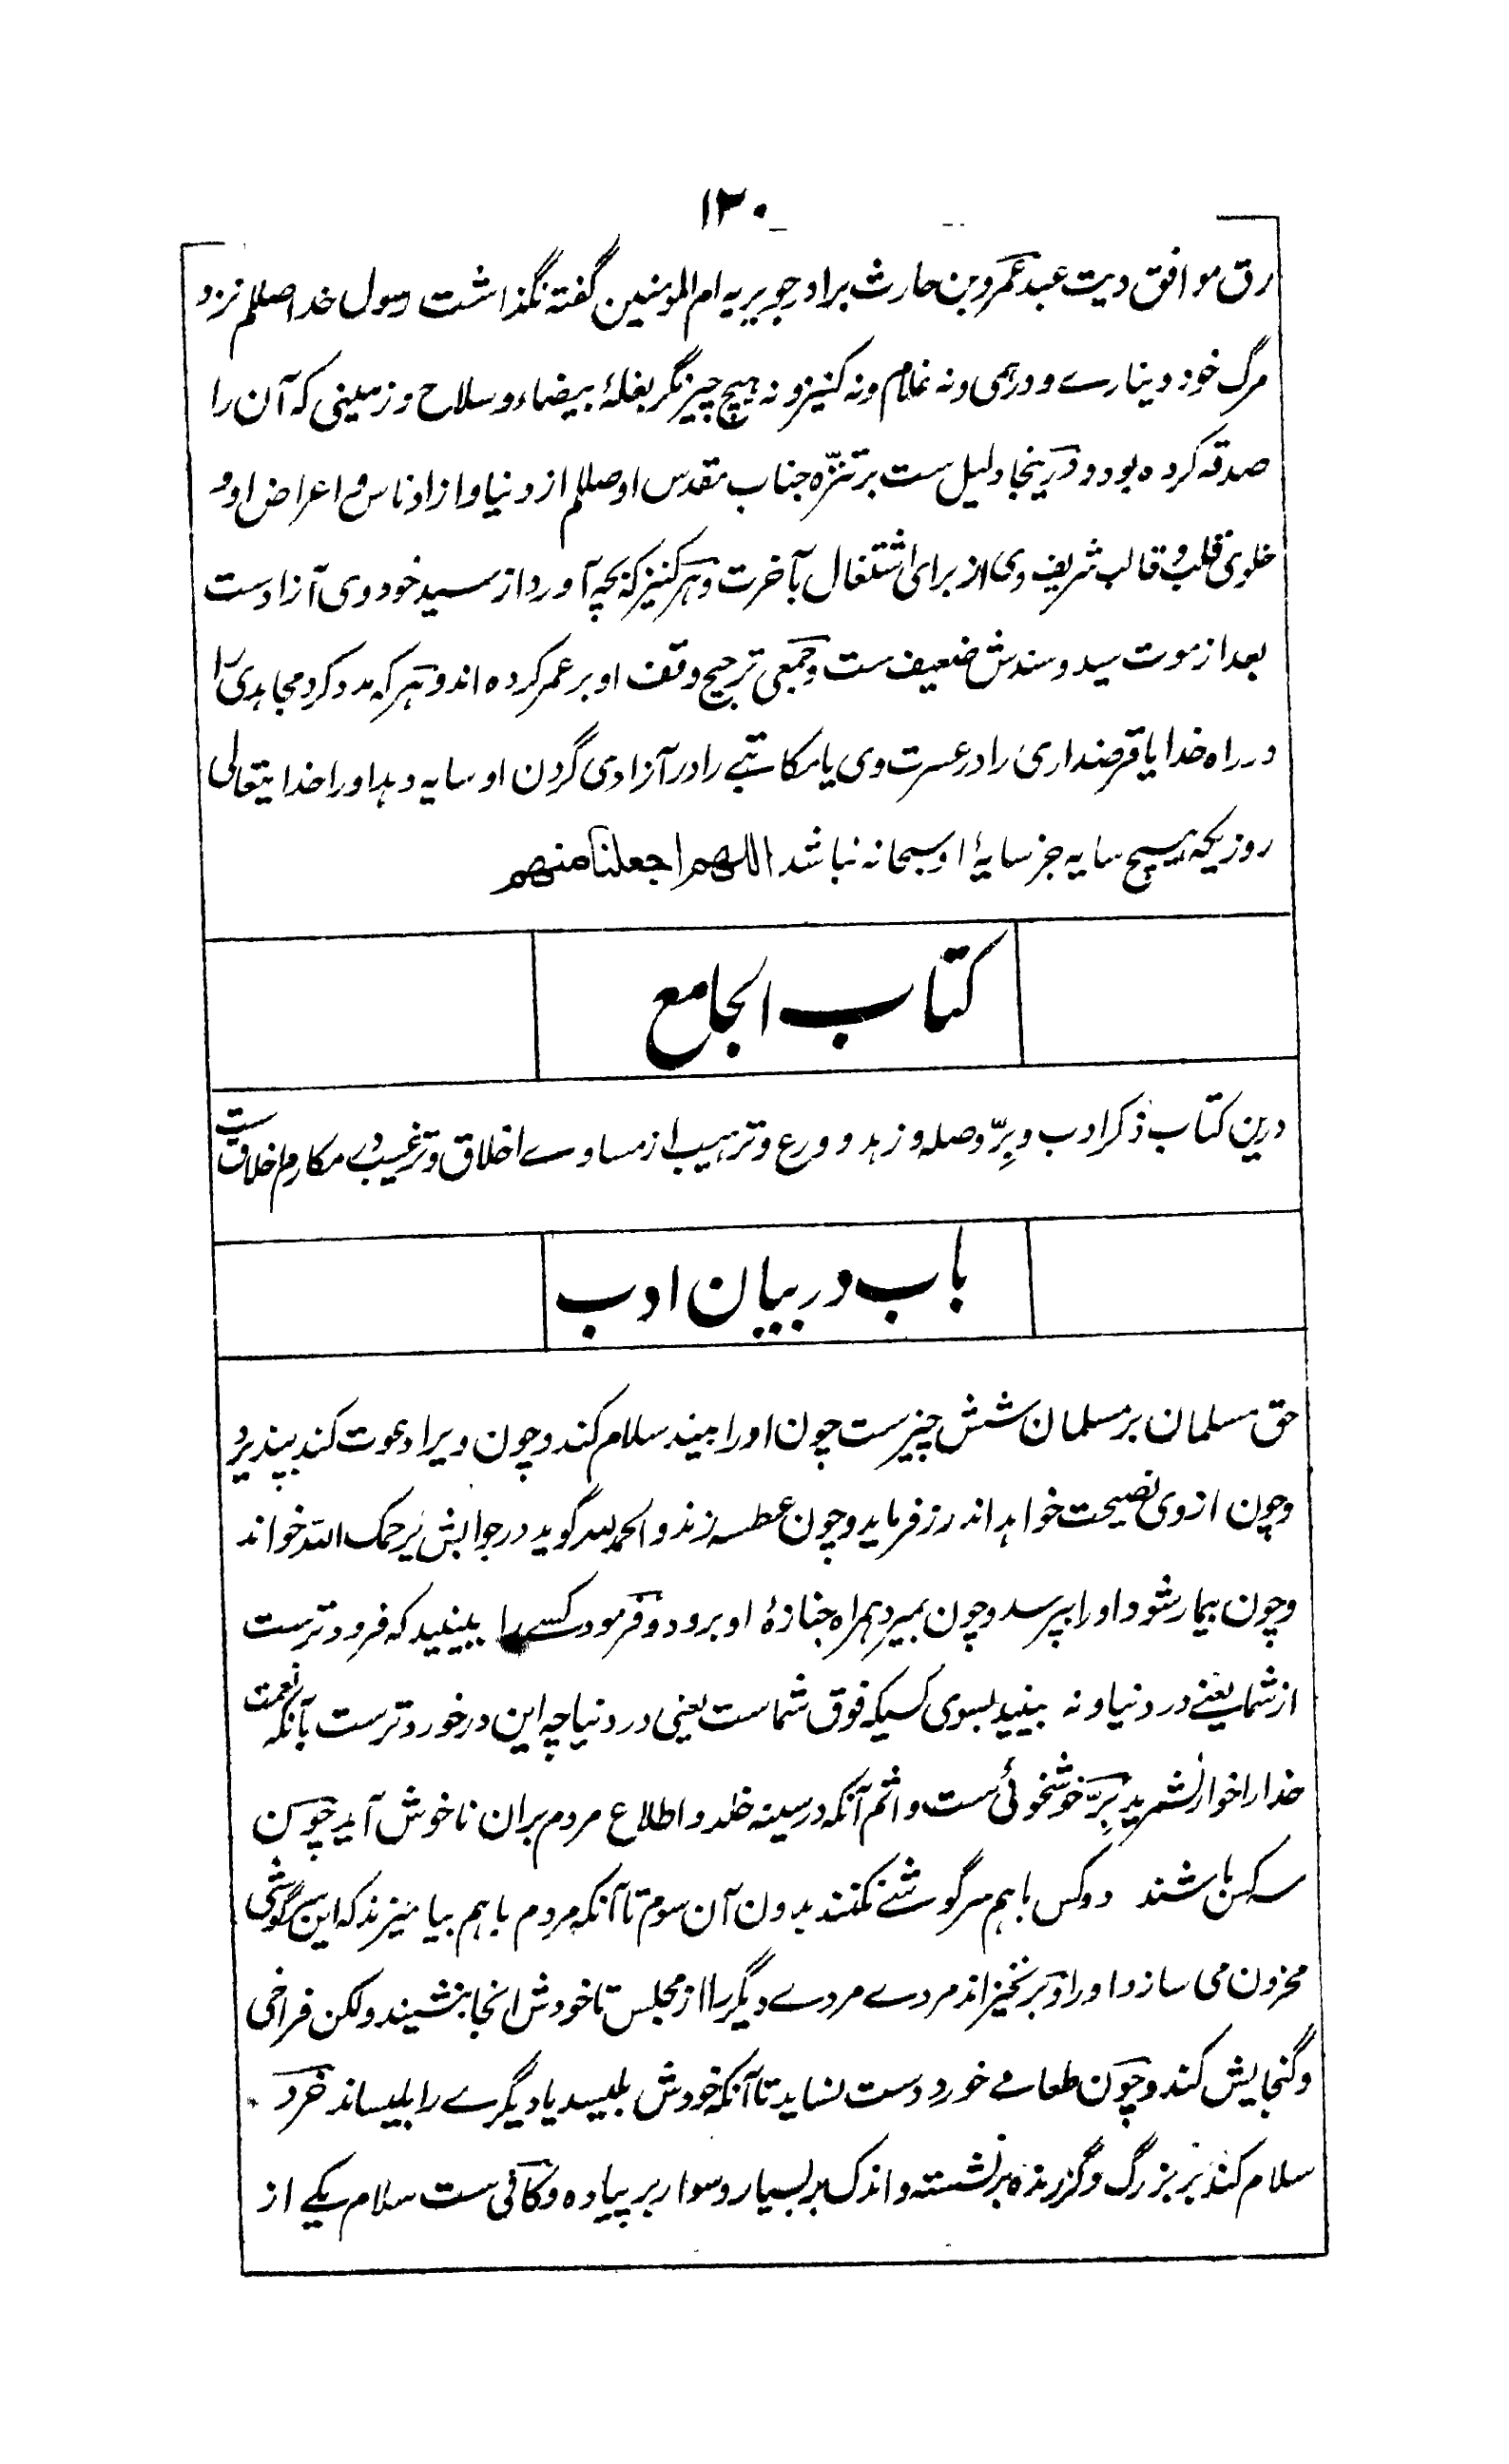 ۱۳۰
رق موافق دیت عبد عمرو بن حارث برادر جویریه ام المومنین گفته نگذاشت رسول خدا صللم نزد
مرگ خود دینارے و درهمی و نه غلام و نه کنیز و نه هیچ چیز مگر بغلۀ بیضاء و سلاح و زمینی که آن را
صدقه کرده بود و درینجا دلیل ست بر تنزّه جناب مقدس او صللم از دنیا و از ادناس و اعراض او و
خلوی قلب و قالب شریف وی از برای اشتغال بآخرت و هر کنیز که بچه آورد از سید خود وی آزادست
بعد از موت سید و سندش ضعیف ست و جمعی ترجیح وقف او بر عمر کرده اند و هر که مدد کرد مجاهدی را
در راه خدا یا قرضداری را در عسرت وی یا مکاتبے را در آزادی گردن او سایه دهد او را خدایتعالی
روزیکه هیچ سایه جز سایۀ او سبحانه نباشد اللهم اجعلنا منهم
کتاب الجامع
درین کتاب ذکر ادب و بِرّ و صله و زهد و ورع و ترهیب از مساوے اخلاق و ترغیب در مکارم اخلاق ست
باب در بیان ادب
حق مسلمان بر مسلمان شش چیزست چون او را بیند سلام کند و چون ویرا دعوت کند بپذیرد
و چون از وی نصیحت خواهد اندرز فرماید و چون عطسه زند و الحمد لله گوید در جوابش یرحمک الله خواند
و چون بیمار شود او را بپرسد و چون بمیرد همراه جنازۀ او برود و فرمود کسے را ببینید که فروترست
از شما یعنے در دنیا و نه بینید بسوی کسیکه فوق شماست یعنی در دنیا چه این درخورترست بآنکه نعمت
خدا را خوار نشمرید بِرّ خوشخوئی ست و اثم آنکه در سینه خلد و اطلاع مردم بران ناخوش آید چون
سه کس باشند دو کس باهم سرگوشے نکنند بدون آن سوم تا آنکه مردم باهم بیامیزند که این سرگوشی
محزون می سازد او را و بر نخیزاند مردے مردے دیگر را از مجلس تا خودش انجا بنشیند ولکن فراخی
و گنجایش کند و چون طعامے خورد دست نساید تا آنکه خودش بلیسد یا دیگرے را بلیساند خرد
سلام کند بر بزرگ و گزرنده بر نشسته و اندک بر بسیار و سوار بر پیاده و کافی ست سلام یکے از